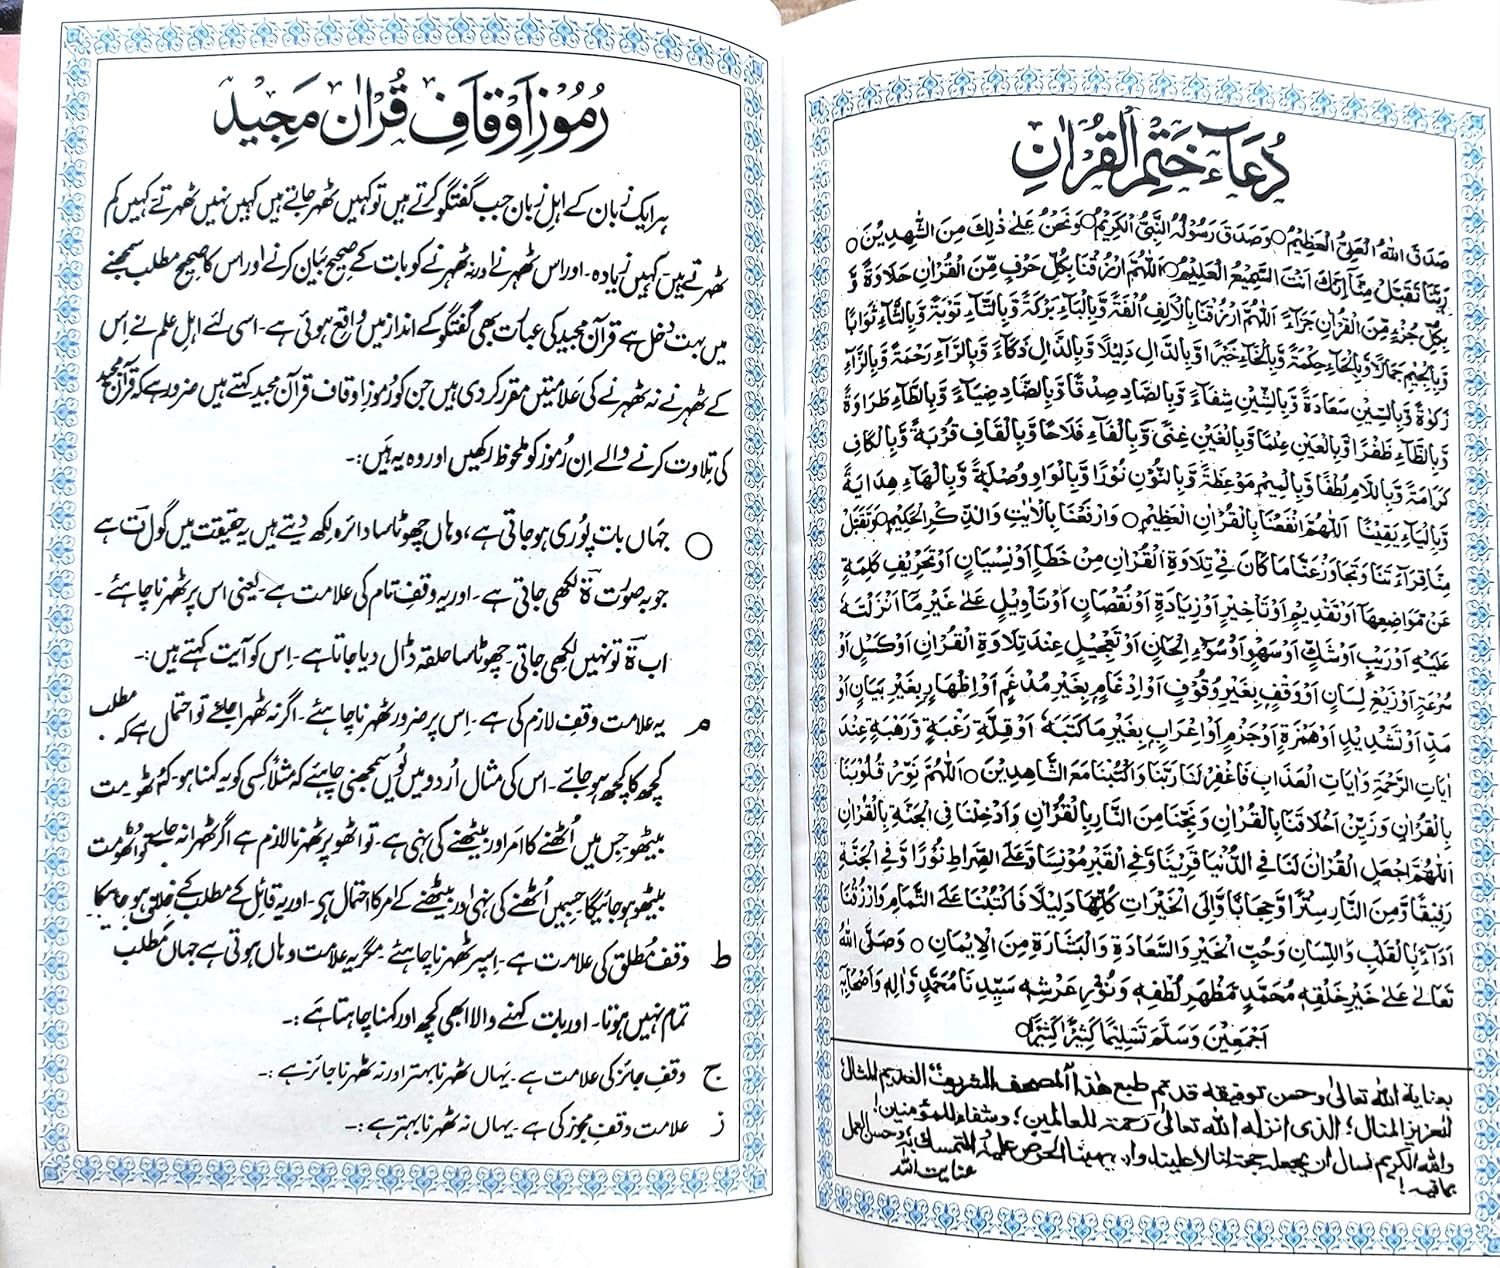 دُعَآء خَتْمِ الْقُرْاٰنِ
صَدَقَ اللّٰهُ الْعَلِیُّ الْعَظِیْمُ○ وَصَدَقَ رَسُوْلُهُ النَّبِیُّ الْكَرِیْمُ○ وَنَحْنُ عَلٰی ذٰلِكَ مِنَ الشّٰهِدِیْنَ○
رَبَّنَا تَقَبَّلْ مِنَّا اِنَّكَ اَنْتَ السَّمِیْعُ الْعَلِیْمُ○ اَللّٰهُمَّ ارْزُقْنَا بِكُلِّ حَرْفٍ مِّنَ الْقُرْاٰنِ حَلَاوَةً وَّ
بِكُلِّ جُزْءٍ مِّنَ الْقُرْاٰنِ جَزَآءً اَللّٰهُمَّ ارْزُقْنَا بِالْاَلِفِ اُلْفَةً وَّبِالْبَآءِ بَرَكَةً وَّبِالتَّآءِ تَوْبَةً وَّبِالثَّآءِ ثَوَابًا
وَّبِالْجِیْمِ جَمَالًا وَّبِالْحَآءِ حِكْمَةً وَّبِالْخَآءِ خَیْرًا وَّبِالدَّالِ دَلِیْلًا وَّبِالذَّالِ ذَكَآءً وَّبِالرَّآءِ رَحْمَةً وَّبِالزَّآءِ
زَكٰوةً وَّبِالسِّیْنِ سَعَادَةً وَّبِالشِّیْنِ شِفَآءً وَّبِالصَّادِ صِدْقًا وَّبِالضَّادِ ضِیَآءً وَّبِالطَّآءِ طَرَاوَةً
وَّبِالظَّآءِ ظَفْرًا وَّبِالْعَیْنِ عِلْمًا وَّبِالْغَیْنِ غِنًی وَّبِالْفَآءِ فَلَاحًا وَّبِالْقَافِ قُرْبَةً وَّبِالْكَافِ
كَرَامَةً وَّبِاللَّامِ لُطْفًا وَّبِالْمِیْمِ مَوْعِظَةً وَّبِالنُّوْنِ نُوْرًا وَّبِالْوَاوِ وُصْلَةً وَّبِالْهَآءِ هِدَایَةً
وَّبِالْیَآءِ یَقِیْنًا اَللّٰهُمَّ انْفَعْنَا بِالْقُرْاٰنِ الْعَظِیْمِ○ وَارْفَعْنَا بِالْاٰیٰتِ وَالذِّكْرِ الْحَكِیْمِ○ وَتَقَبَّلْ
مِنَّا قِرَآءَتَنَا وَتَجَاوَزْ عَنَّا مَا كَانَ فِیْ تِلَاوَةِ الْقُرْاٰنِ مِنْ خَطَاٍ اَوْ نِسْیَانٍ اَوْ تَحْرِیْفِ كَلِمَةٍ
عَنْ مَّوَاضِعِهَا اَوْ تَقْدِیْمٍ اَوْ تَاْخِیْرٍ اَوْ زِیَادَةٍ اَوْ نُقْصَانٍ اَوْ تَاْوِیْلٍ عَلٰی غَیْرِ مَا اَنْزَلْتَهٗ
عَلَیْهِ اَوْ رَیْبٍ اَوْ شَكٍّ اَوْ سَهْوٍ اَوْ سُوْٓءِ اِلْحَانٍ اَوْ تَعْجِیْلٍ عِنْدَ تِلَاوَةِ الْقُرْاٰنِ اَوْ كَسَلٍ اَوْ
سُرْعَةٍ اَوْ زَیْغِ لِسَانٍ اَوْ وَقْفٍ بِغَیْرِ وُقُوْفٍ اَوْ اِدْغَامٍ بِغَیْرِ مُدْغَمٍ اَوْ اِظْهَارٍ بِغَیْرِ بَیَانٍ اَوْ
مَدٍّ اَوْ تَشْدِیْدٍ اَوْ هَمْزَةٍ اَوْ جَزْمٍ اَوْ اِعْرَابٍ بِغَیْرِ مَا كَتَبَهٗ اَوْ قِلَّةِ رَغْبَةٍ وَّرَهْبَةٍ عِنْدَ
اٰیَاتِ الرَّحْمَةِ وَاٰیَاتِ الْعَذَابِ فَاغْفِرْ لَنَا رَبَّنَا وَاكْتُبْنَا مَعَ الشَّاهِدِیْنَ○ اَللّٰهُمَّ نَوِّرْ قُلُوْبَنَا
بِالْقُرْاٰنِ وَزَیِّنْ اَخْلَاقَنَا بِالْقُرْاٰنِ وَنَجِّنَا مِنَ النَّارِ بِالْقُرْاٰنِ وَاَدْخِلْنَا فِی الْجَنَّةِ بِالْقُرْاٰنِ
اَللّٰهُمَّ اجْعَلِ الْقُرْاٰنَ لَنَا فِی الدُّنْیَا قَرِیْنًا وَّفِی الْقَبْرِ مُوْنِسًا وَّعَلَی الصِّرَاطِ نُوْرًا وَّفِی الْجَنَّةِ
رَفِیْقًا وَّمِنَ النَّارِ سِتْرًا وَّحِجَابًا وَّاِلَی الْخَیْرَاتِ كُلِّهَا دَلِیْلًا فَاكْتُبْنَا عَلَی التَّمَامِ وَارْزُقْنَا
اَدَآءً بِالْقَلْبِ وَاللِّسَانِ وَحُبِّ الْخَیْرِ وَالسَّعَادَةِ وَالْبَشَارَةِ مِنَ الْاِیْمَانِ○ وَصَلَّی اللّٰهُ
تَعَالٰی عَلٰی خَیْرِ خَلْقِهٖ مُحَمَّدٍ مَّظْهَرِ لُطْفِهٖ وَنُوْرِ عَرْشِهٖ سَیِّدِنَا مُحَمَّدٍ وَّاٰلِهٖ وَاَصْحَابِهٖ
اَجْمَعِیْنَ وَسَلَّمَ تَسْلِیْمًا كَثِیْرًا كَثِیْرًا○
بعنایة الله تعالٰی وحسن توفیقه قد تم طبع هذا المصحف الشریف العدیم المثال
العزیز المنال؛ الذی انزله الله تعالٰی رحمة للعالمین؛ وشفاء للمؤمنین!
والله الكریم نسال ان یجعله حجة لنا لا علینا وان یهبنا الحرص علی التمسك به وحسن العمل
بما فیه! عنایت الله
رُمُوْزِ اَوْقَافِ قُرْاٰن مَجِیْد
ہر ایک زبان کے اہلِ زبان جب گفتگو کرتے ہیں تو کہیں ٹھہر جاتے ہیں کہیں نہیں ٹھہرتے کہیں کم
ٹھہرتے ہیں کہیں زیادہ۔ اور اس ٹھہرنے اور نہ ٹھہرنے کو بات کے صحیح بیان کرنے اور اس کا صحیح مطلب سمجھنے
میں بہت دخل ہے قرآن مجید کی عبارت بھی گفتگو کے انداز میں واقع ہوئی ہے۔ اسی لئے اہلِ علم نے اس
کے ٹھہرنے نہ ٹھہرنے کی علامتیں مقرر کر دی ہیں جن کو رُموزِ اوقاف قرآن مجید کہتے ہیں ضرور ہے کہ قرآن مجید
کی تلاوت کرنے والے ان رُموز کو ملحوظ رکھیں اور وہ یہ ہیں:۔
○ جہاں بات پوُری ہو جاتی ہے، وہاں چھوٹا سا دائرہ لکھ دیتے ہیں یہ حقیقت میں گول ت ہے
جو بہ صورت ۃ لکھی جاتی ہے۔ اور یہ وقفِ تام کی علامت ہے۔ یعنی اس پر ٹھہرنا چاہئے۔
اب ۃ تو نہیں لکھی جاتی۔ چھوٹا سا حلقہ ڈال دیا جاتا ہے۔ اِس کو آیت کہتے ہیں:۔
مـ یہ علامت وقفِ لازم کی ہے۔ اس پر ضرور ٹھہرنا چاہئے۔ اگر نہ ٹھہرا جائے تو احتمال ہے کہ مطلب
کچھ کا کچھ ہو جائے۔ اس کی مثال اُردو میں یوُں سمجھنی چاہئے کہ مثلاً کسی کو یہ کہنا ہو۔ کہ اُٹھو۔ مت
بیٹھو۔ جس میں اُٹھنے کا امر اور بیٹھنے کی نہی ہے۔ تو اٹھو پر ٹھہرنا لازم ہے اگر ٹھہرا نہ جائے تو اُٹھو مت
بیٹھو ہو جائیگا جسمیں اُٹھنے کی نہی اور بیٹھنے کے امر کا احتمال ہے۔ اور یہ قائل کے مطلب کے خلاف ہو جائیگا۔
ط وقفِ مُطلق کی علامت ہے۔ اسپر ٹھہرنا چاہئے۔ مگر یہ علامت وہاں ہوتی ہے جہاں مطلب
تمام نہیں ہوتا۔ اور بات کہنے والا ابھی کچھ اور کہنا چاہتا ہے:۔
ج وقفِ جائز کی علامت ہے۔ یہاں ٹھہرنا بہتر اور نہ ٹھہرنا جائز ہے:۔
ز علامت وقفِ مجوّز کی ہے۔ یہاں نہ ٹھہرنا بہتر ہے:۔